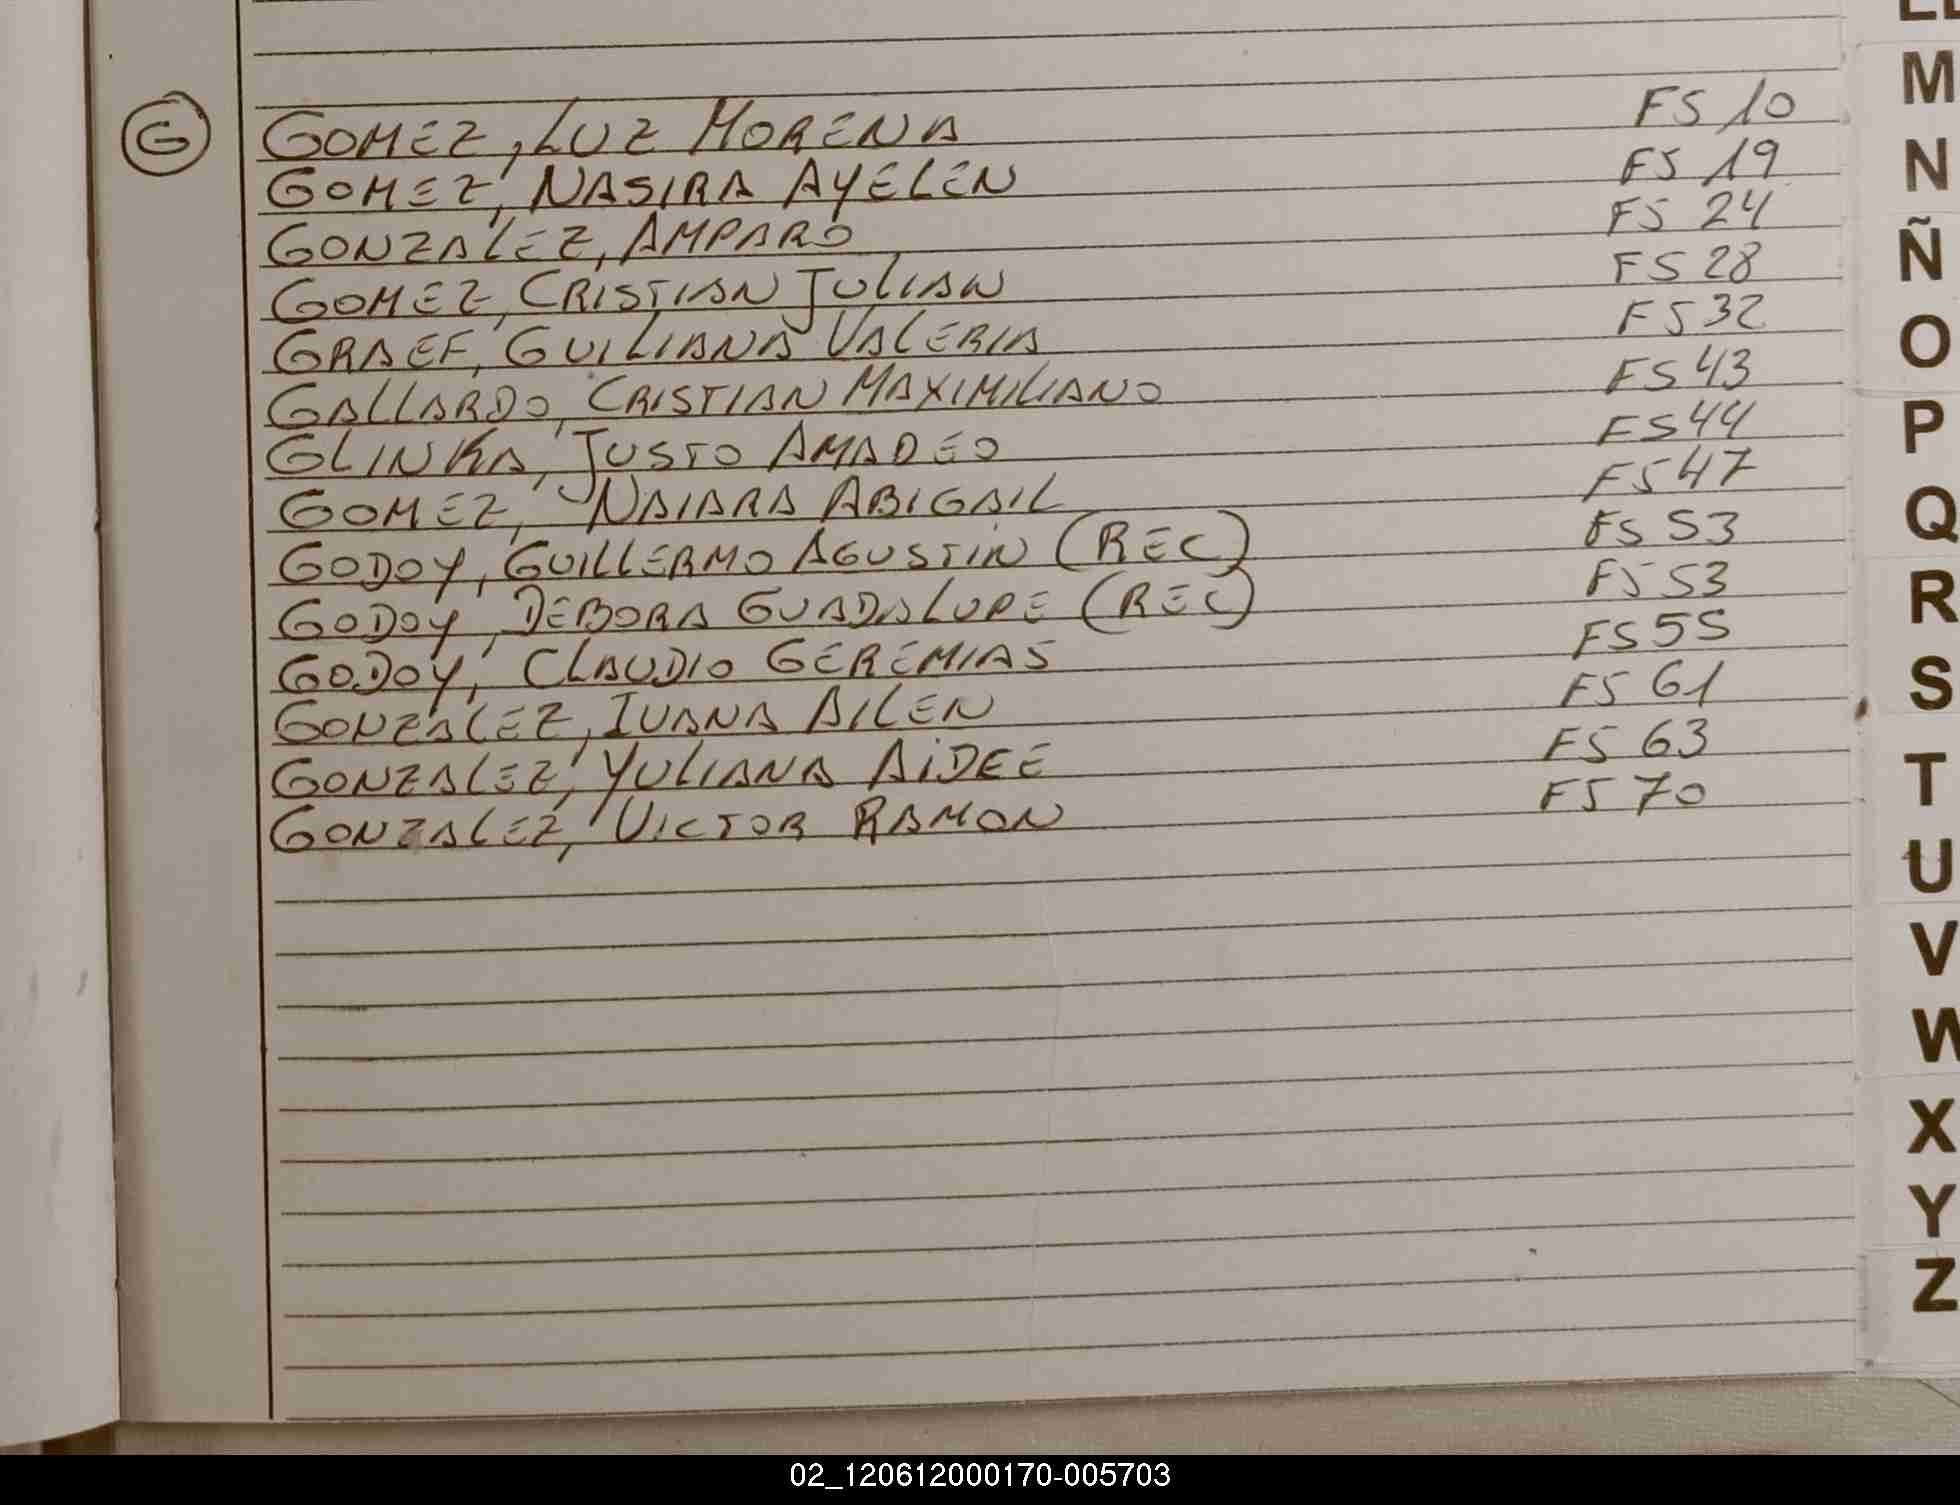 G
GOMEZ, LUZ MORENA FS 10
GOMEZ, NASIRA AYELEN FS 19
GONZALEZ, AMPARO FS 24
GOMEZ, CRISTIAN JULIAN FS 28
GRAEF, GUILIANA VALERIA FS 32
GALLARDO, CRISTIAN MAXIMILIANO FS 43
GLINKA, JUSTO AMADEO FS 44
GOMEZ, NAIARA ABIGAIL FS 47
GODOY, GUILLERMO AGUSTIN (REC) FS 53
GODOY, DEBORA GUADALUPE (REC) FS 53
GODOY, CLAUDIO GEREMIAS FS 55
GONZALEZ, IVANA AILEN FS 61
GONZALEZ, YULIANA AIDEE FS 63
GONZALEZ, VICTOR RAMON FS 70
M
N
Ñ
O
P
Q
R
S
T
U
V
W
X
Y
Z
02_120612000170-005703